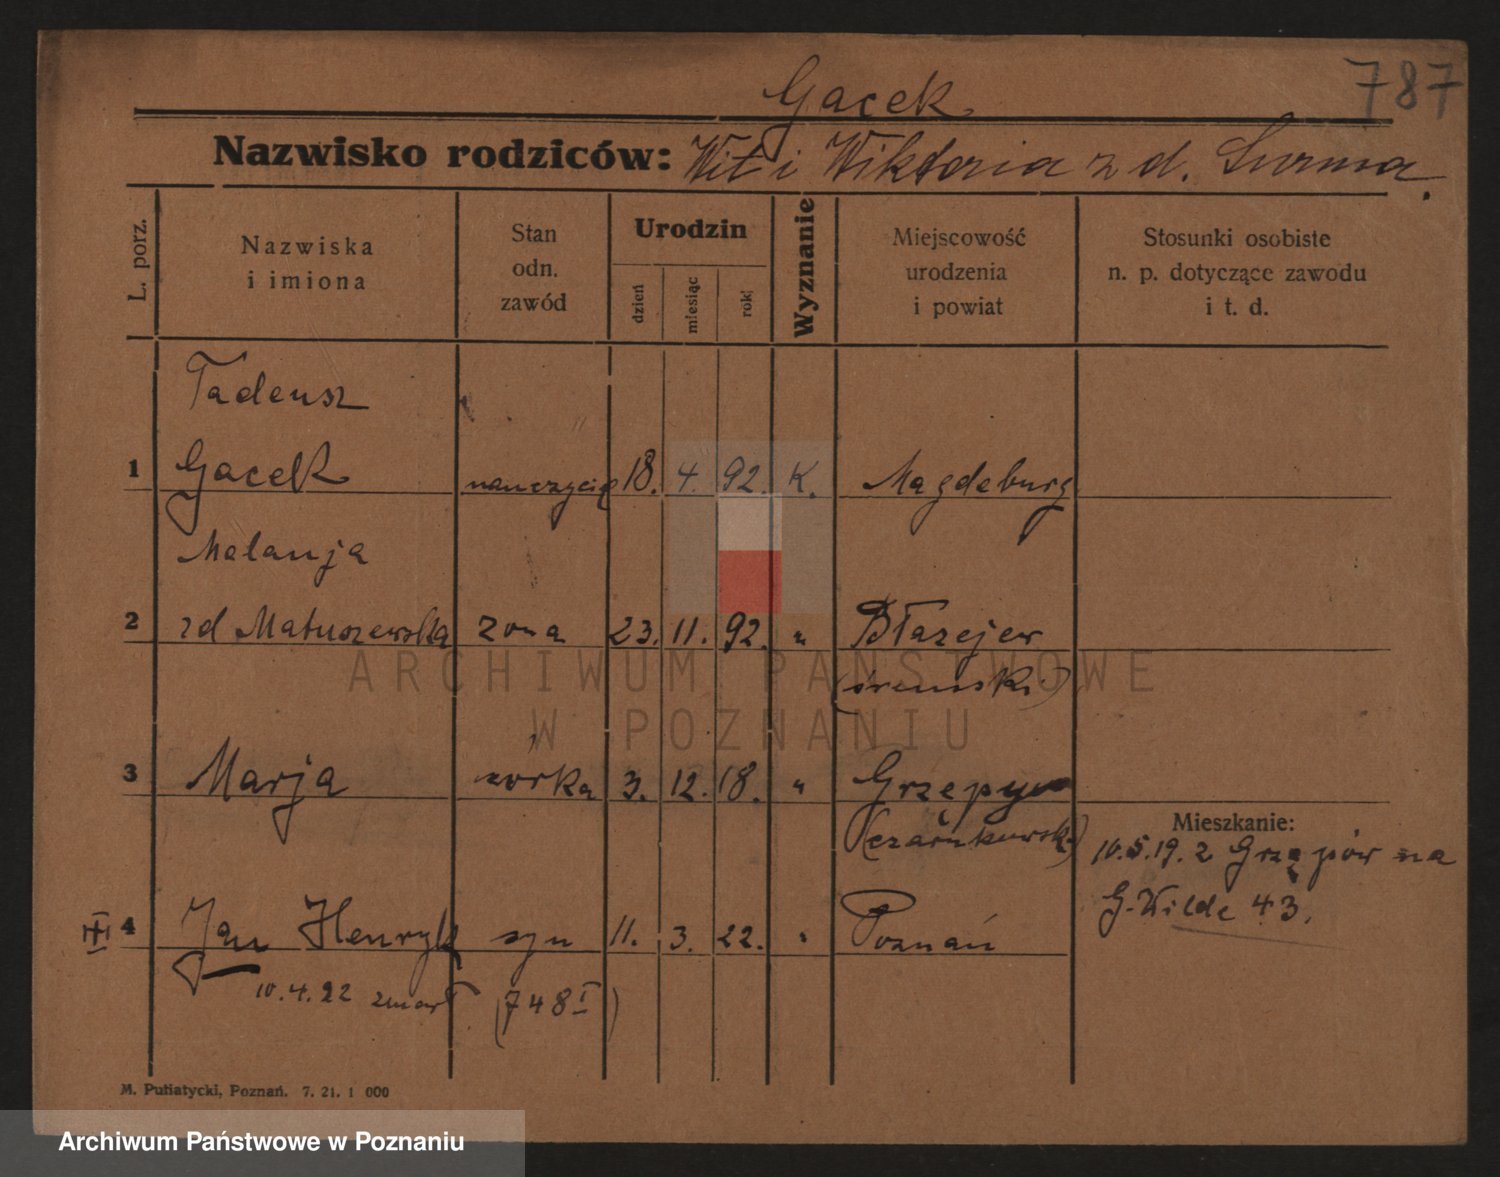 Gacek
787
Nazwisko rodziców: Wit i Wiktoria z d. Surma.
L. porz.
Nazwiska
i imiona
Stan
odn.
zawód
Urodzin
dzień
miesiąc
rok
Wyznanie
Miejscowość
urodzenia
i powiat
Stosunki osobiste
n. p. dotyczące zawodu
i t. d.
Tadeusz
1 Gacek nauczyciel 18. 4. 92. K. Magdeburg
Melanja
2 zd Matuszewska żona 23. 11. 92. " Błażejew
(śremski)
3 Marja córka 3. 12. 18. "
(czarnkowski)
Mieszkanie:
10.5.19. z Grzępów na
G. Wilde 43.
4 Jan Henryk syn 11. 3. 22. " Poznań
10.4.22 zmarł (748 I)
M. Putiatycki, Poznań. 7. 21. 1 000
ARCHIWUM PAŃSTWOWE
W POZNANIU
Archiwum Państwowe w Poznaniu